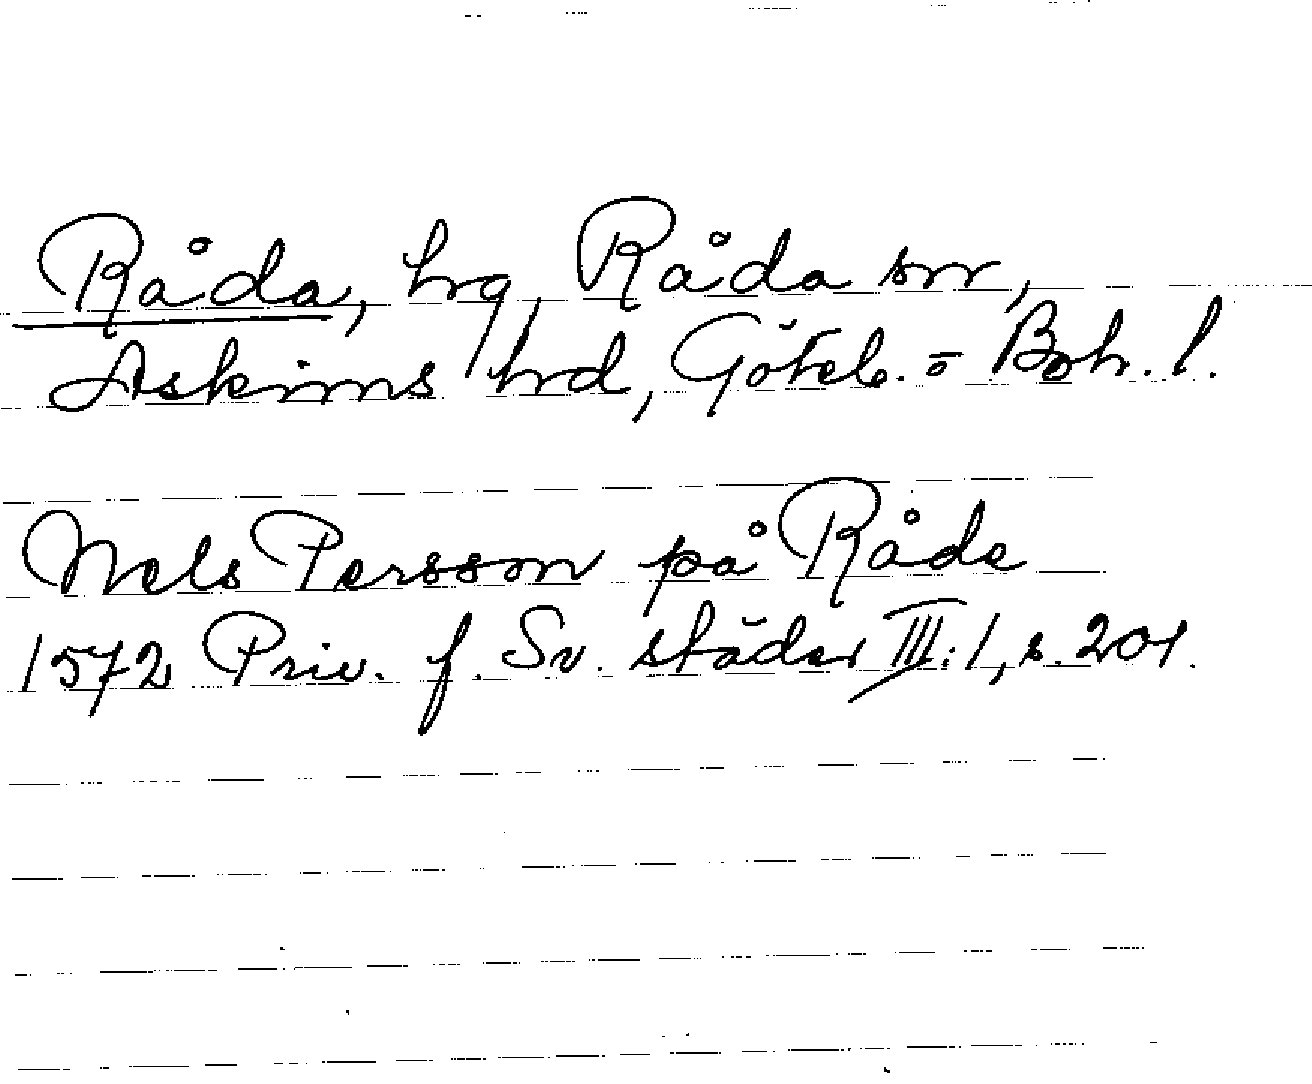 Råda, hrg, Råda snr,
Askims hrd, Göteb. o Boh. l.
Nels Persson på Råde
1572 Priv. f. Sv. städer III:1, s. 201.